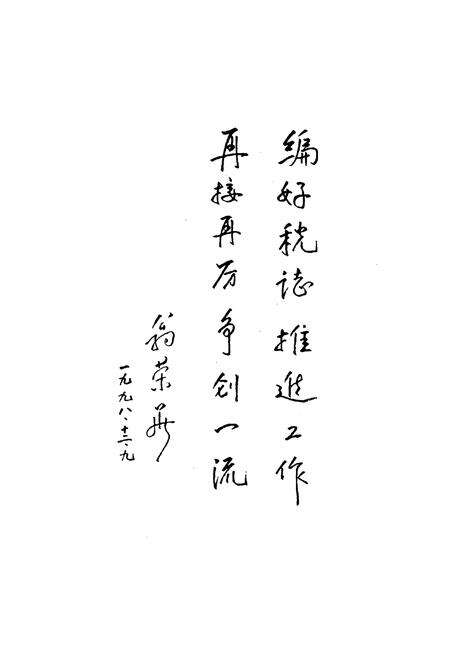 编好税誌 推進工作
再接再厉 争创一流
翁荣華
一九九八·十二·九